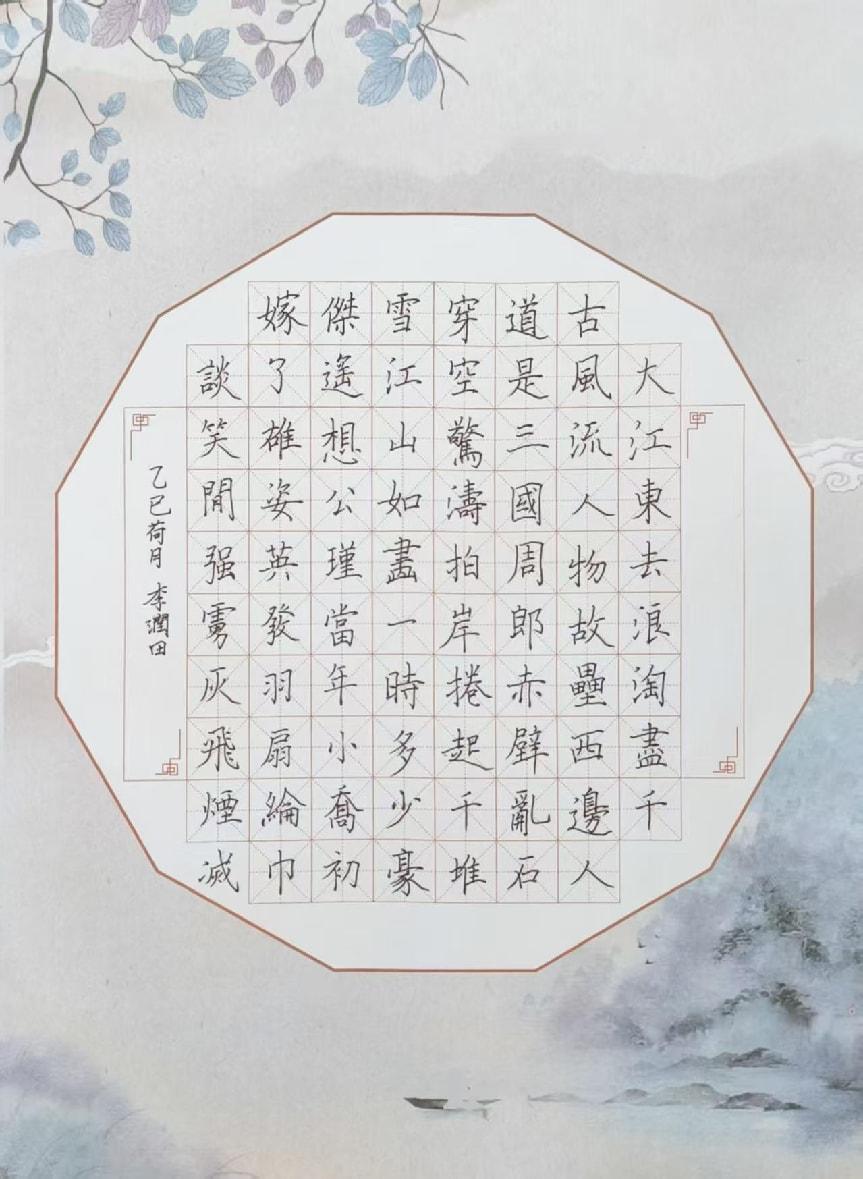 大江東去浪淘盡千
古風流人物故壘西邊人
道是三國周郎赤壁亂石
穿空驚濤拍岸捲起千堆
雪江山如畫一時多少豪
傑遙想公瑾當年小喬初
嫁了雄姿英發羽扇綸巾
談笑閒强虜灰飛煙滅
乙巳荷月 李潤田